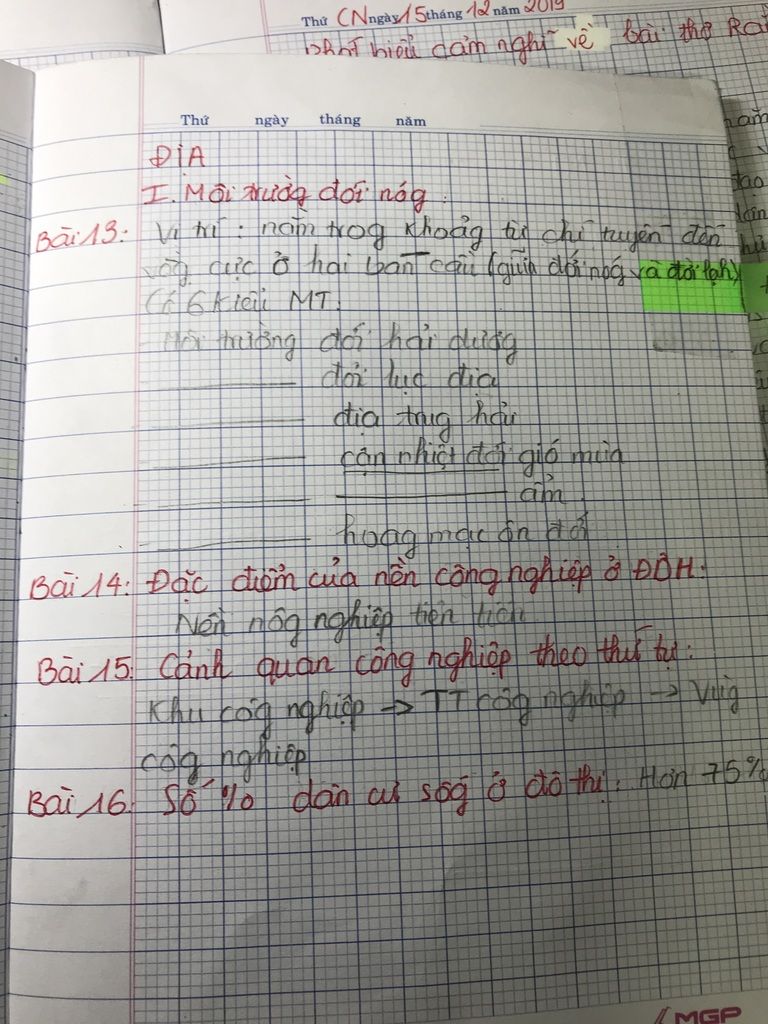 Thứ CN ngày 15 tháng 12 năm 2019
phát biểu cảm nghĩ về bài thơ
Thứ ngày tháng năm
ĐỊA
I. Môi trường đới nóg.
Bài 13: Vị trí: nằm trog khoảg từ chí tuyến đến
vòg cực ở hai bán cầu (giữa đới nóg và đới lạnh)
Có 6 kiểu MT:
Môi trường đới hải dương
đới lục địa
địa trug hải
cận nhiệt đới gió mùa
ẩm
hoag mạc ôn đới
Bài 14: Đặc điểm của nền công nghiệp ở ĐÔH:
Nền nôg nghiệp tiên tiến
Bài 15: Cảnh quan công nghiệp theo thứ tự:
Khu côg nghiệp → TT côg nghiệp → Vùg
côg nghiệp
Bài 16: Số % dân cư sốg ở đô thị: Hơn 75%
MGP